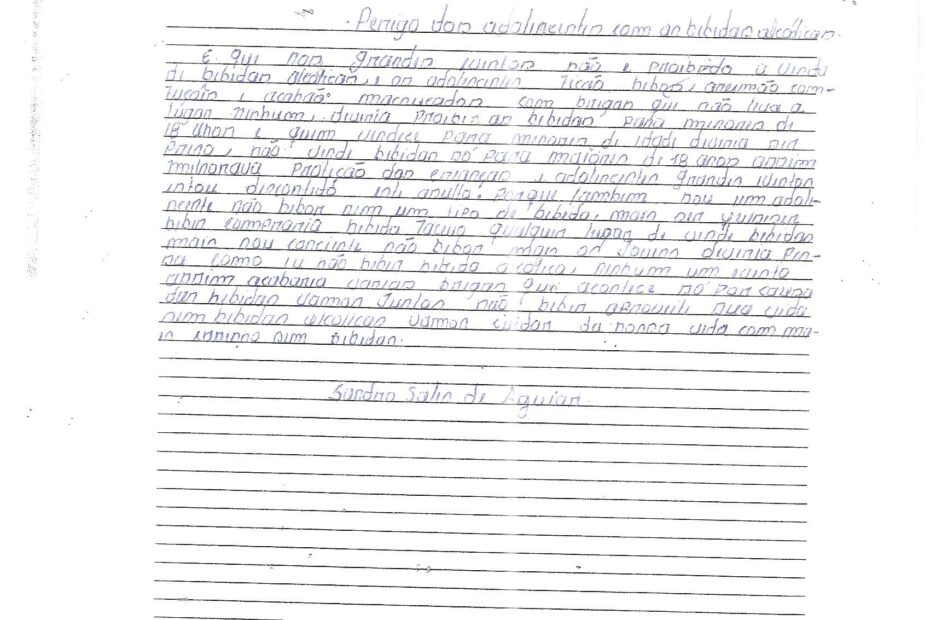 Perigo dos adolecentes com as bebidas alcólicas.
E que nos grandes eventos não e proibido a venda
de bebidas alcolicas, e os adolecentes ficão bebos, arrumão com-
fução e acabão machucados com brigas que não leva a
lugar nenhum, diviria proibir as bebidas para menores di
18 anos e quem vender para menores de idade diviria ser
preso, não vende bebidas só para maiores di 18 anos assim
milhorava proteção das crianças e adolecentes grandes eventos
intou discontido inte adulto. Porque tambem sou um adole-
cente não bibor nem um tipo de bebida, mais ser quiseser
beber compraria bebida facio qualquer lugar de vende bebidas
mais sou conciente não bibor mais os jovens diviria pen-
sa como eu não beber bebida alcolica, nenhum um evento
assim acabaria varias brigas que acontece só por causa
das bebidas vamos juntos não beber aproveite sua vida
sem bebidas alcolicas vamos cuidar da nossa vida com ma-
is sorriso sem bebidas.
Sandro Sales de Aguiar